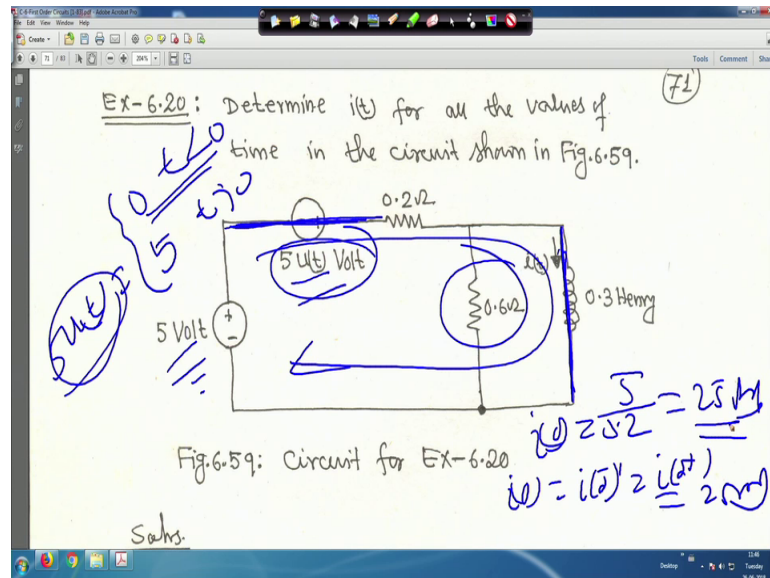 C-6-First Order Circuits [1-83].pdf - Adobe Acrobat Pro
File Edit View Window Help
Create
71 / 83 204% Tools Comment Share
71
Ex-6.20: Determine i(t) for all the values of
time in the circuit shown in Fig.6.59.
0 t<0
5 t>0
5u(t) =
0.2Ω
5u(t) Volt
i(t)
0.6Ω
0.3 Henry
5 Volt
+
-
i(0) = 5/0.2 = 25 Amp
i(0) = i(0-) = i(0+) = 25 Amp
Fig.6.59: Circuit for Ex-6.20
Soln.
11:46
Desktop Tuesday